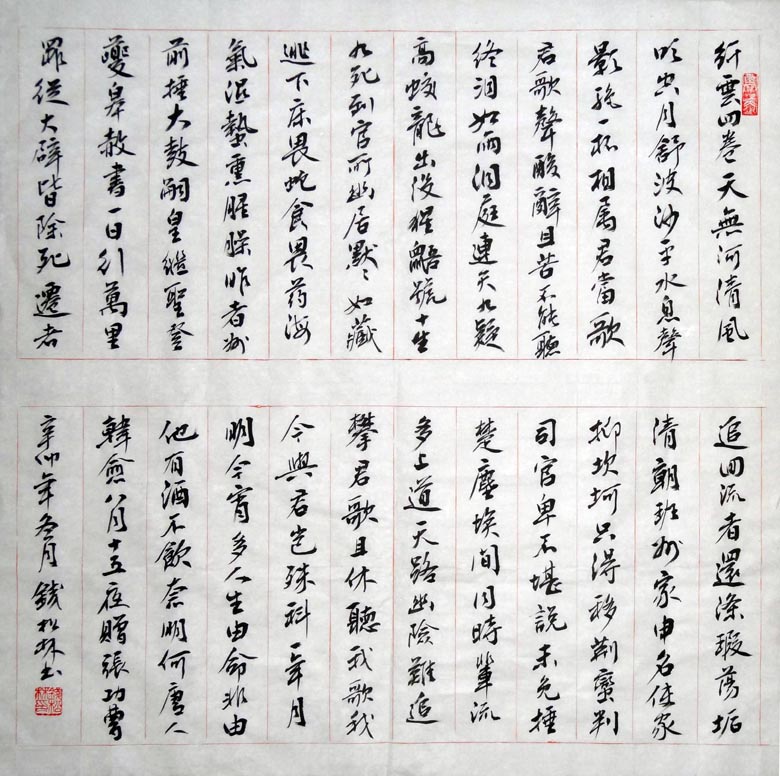 纤雲四卷天無河清風
吹空月舒波沙平水息聲
影绝一杯相属君當歌
君歌聲酸辭且苦不能聽
終泪如雨洞庭連天九疑
高蛟龍出没猩鼯號十生
九死到官所幽居默々如藏
逃下床畏蛇食畏药海
氣湿蟄熏腥臊昨者州
前捶大鼓嗣皇继聖登
夔皋赦書一日行萬里
罪從大辟皆除死遷者
追回流者還滌瑕蕩垢
清朝班州家申名使家
抑坎坷只得移荆蠻判
司官卑不堪説未免捶
楚塵埃間同時輩流
多上道天路幽險難追
攀君歌且休聽我歌我
今與君豈殊科一年月
明今宵多人生由命非由
他有酒不飲奈明何唐人
韓愈八月十五夜贈張功曹
辛卯年冬月錢松林书